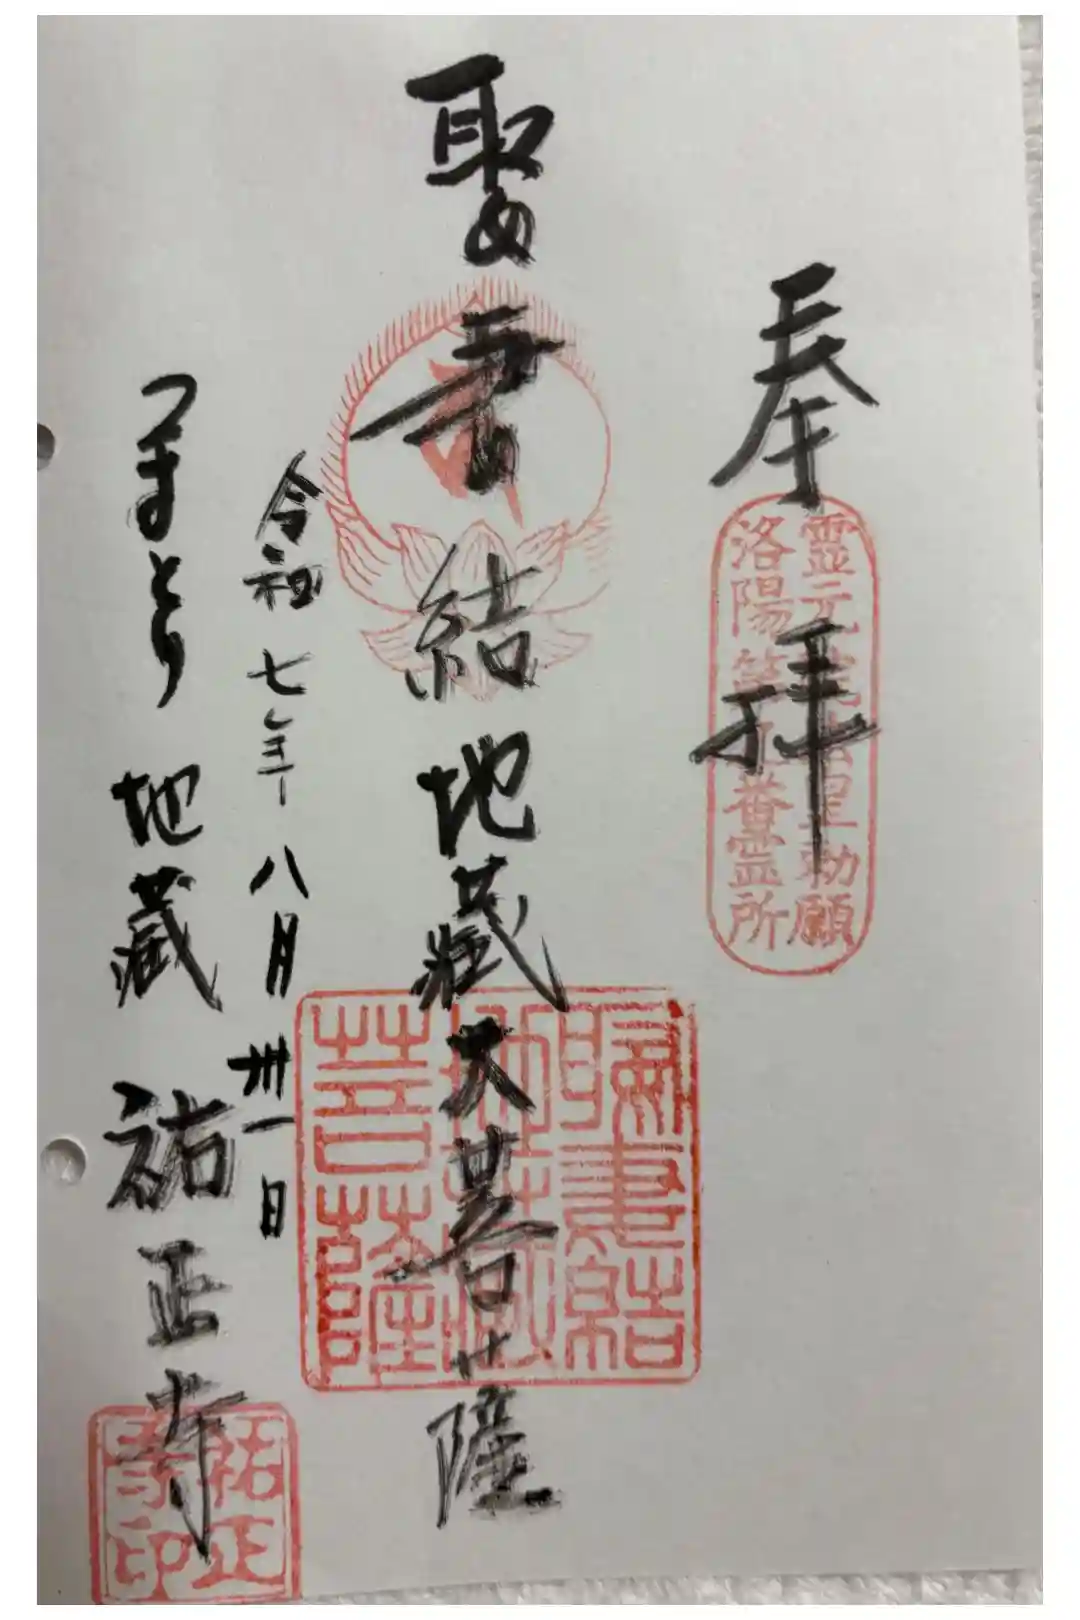 奉拝
靈元 皇勅願
洛陽 番霊所
娶妻結地蔵大菩薩
妻結
地蔵
菩薩
令和七年八月卅一日
つまとり地蔵祐正寺
祐正
寺印